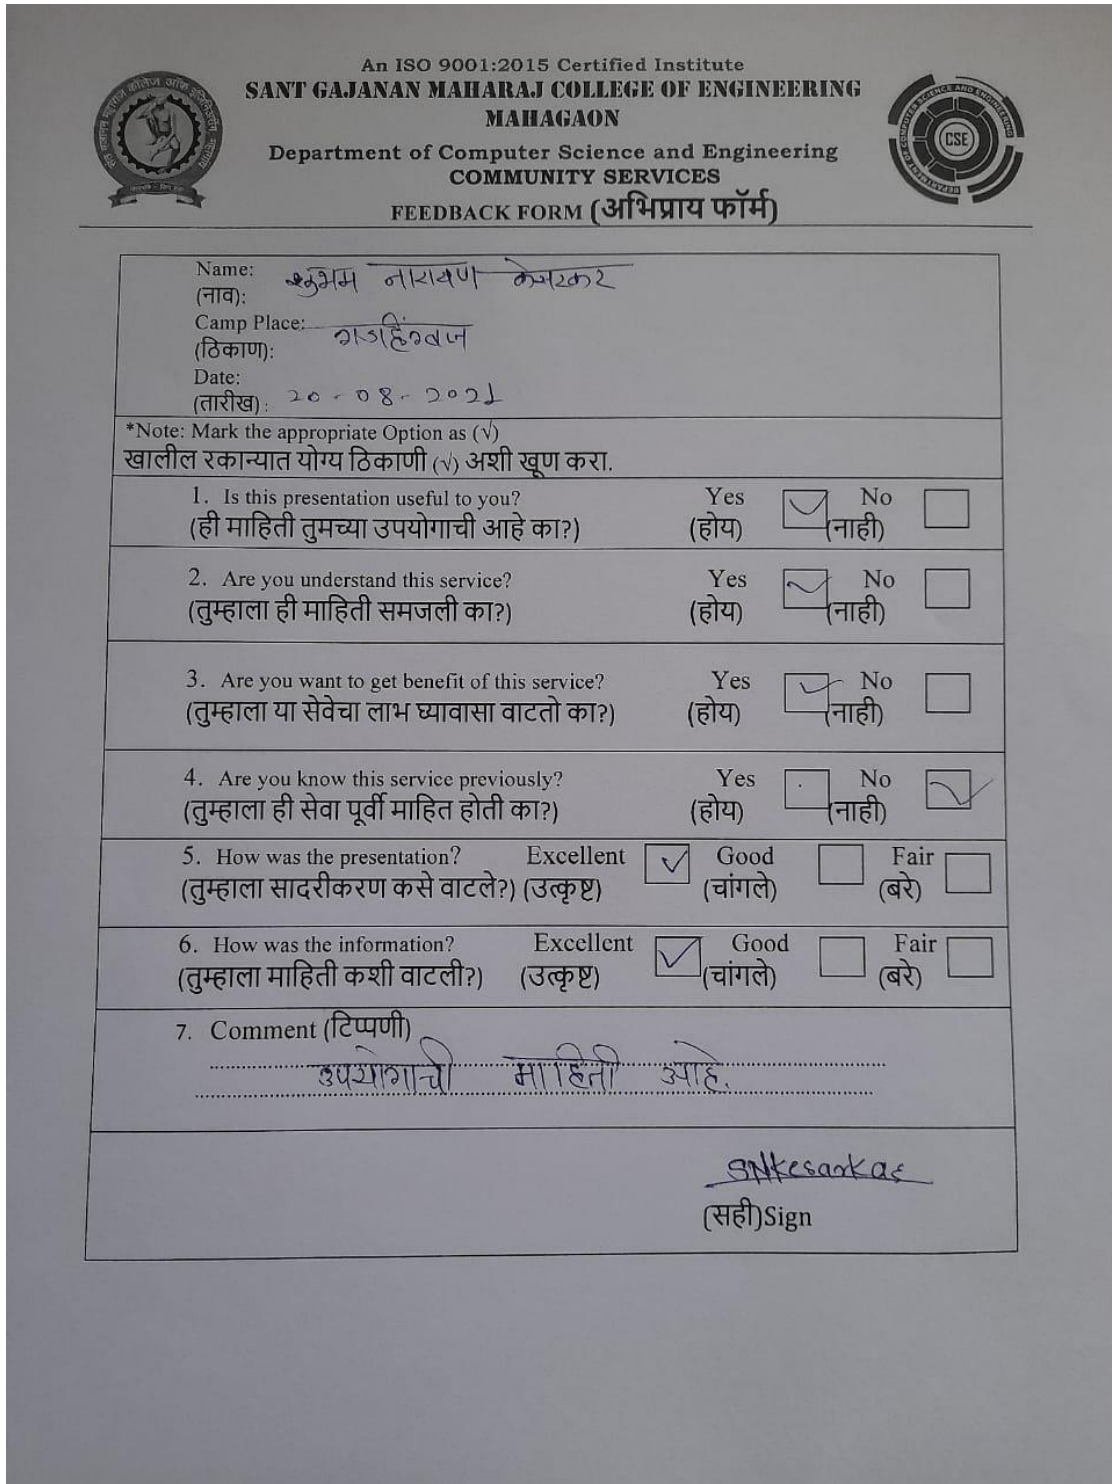 An ISO 9001:2015 Certified Institute
SANT GAJANAN MAHARAJ COLLEGE OF ENGINEERING
MAHAGAON
Department of Computer Science and Engineering
COMMUNITY SERVICES
FEEDBACK FORM (अभिप्राय फॉर्म)
CSE
Name: शुभम नारायण केसरकर
(नाव):
Camp Place: गडहिंग्लज
(ठिकाण):
Date:
(तारीख): 20-08-2021
*Note: Mark the appropriate Option as (√)
खालील रकान्यात योग्य ठिकाणी (√) अशी खूण करा.
1. Is this presentation useful to you? Yes No
(ही माहिती तुमच्या उपयोगाची आहे का?) (होय) (नाही)
2. Are you understand this service? Yes No
(तुम्हाला ही माहिती समजली का?) (होय) (नाही)
3. Are you want to get benefit of this service? Yes No
(तुम्हाला या सेवेचा लाभ घ्यावासा वाटतो का?) (होय) (नाही)
4. Are you know this service previously? Yes No
(तुम्हाला ही सेवा पूर्वी माहित होती का?) (होय) (नाही)
5. How was the presentation? Excellent Good Fair
(तुम्हाला सादरीकरण कसे वाटले?) (उत्कृष्ट) (चांगले) (बरे)
6. How was the information? Excellent Good Fair
(तुम्हाला माहिती कशी वाटली?) (उत्कृष्ट) (चांगले) (बरे)
7. Comment (टिप्पणी)
उपयोगाची माहिती आहे.
SNKesarkar
(सही)Sign